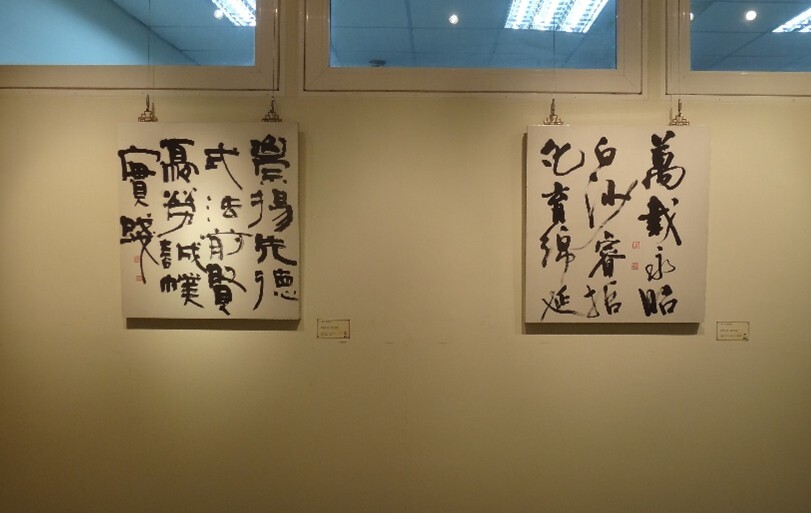 萬載永昭
白沙睿哲
化育綿延
崇揚先德
式法前賢
憂勞誠樸
實踐